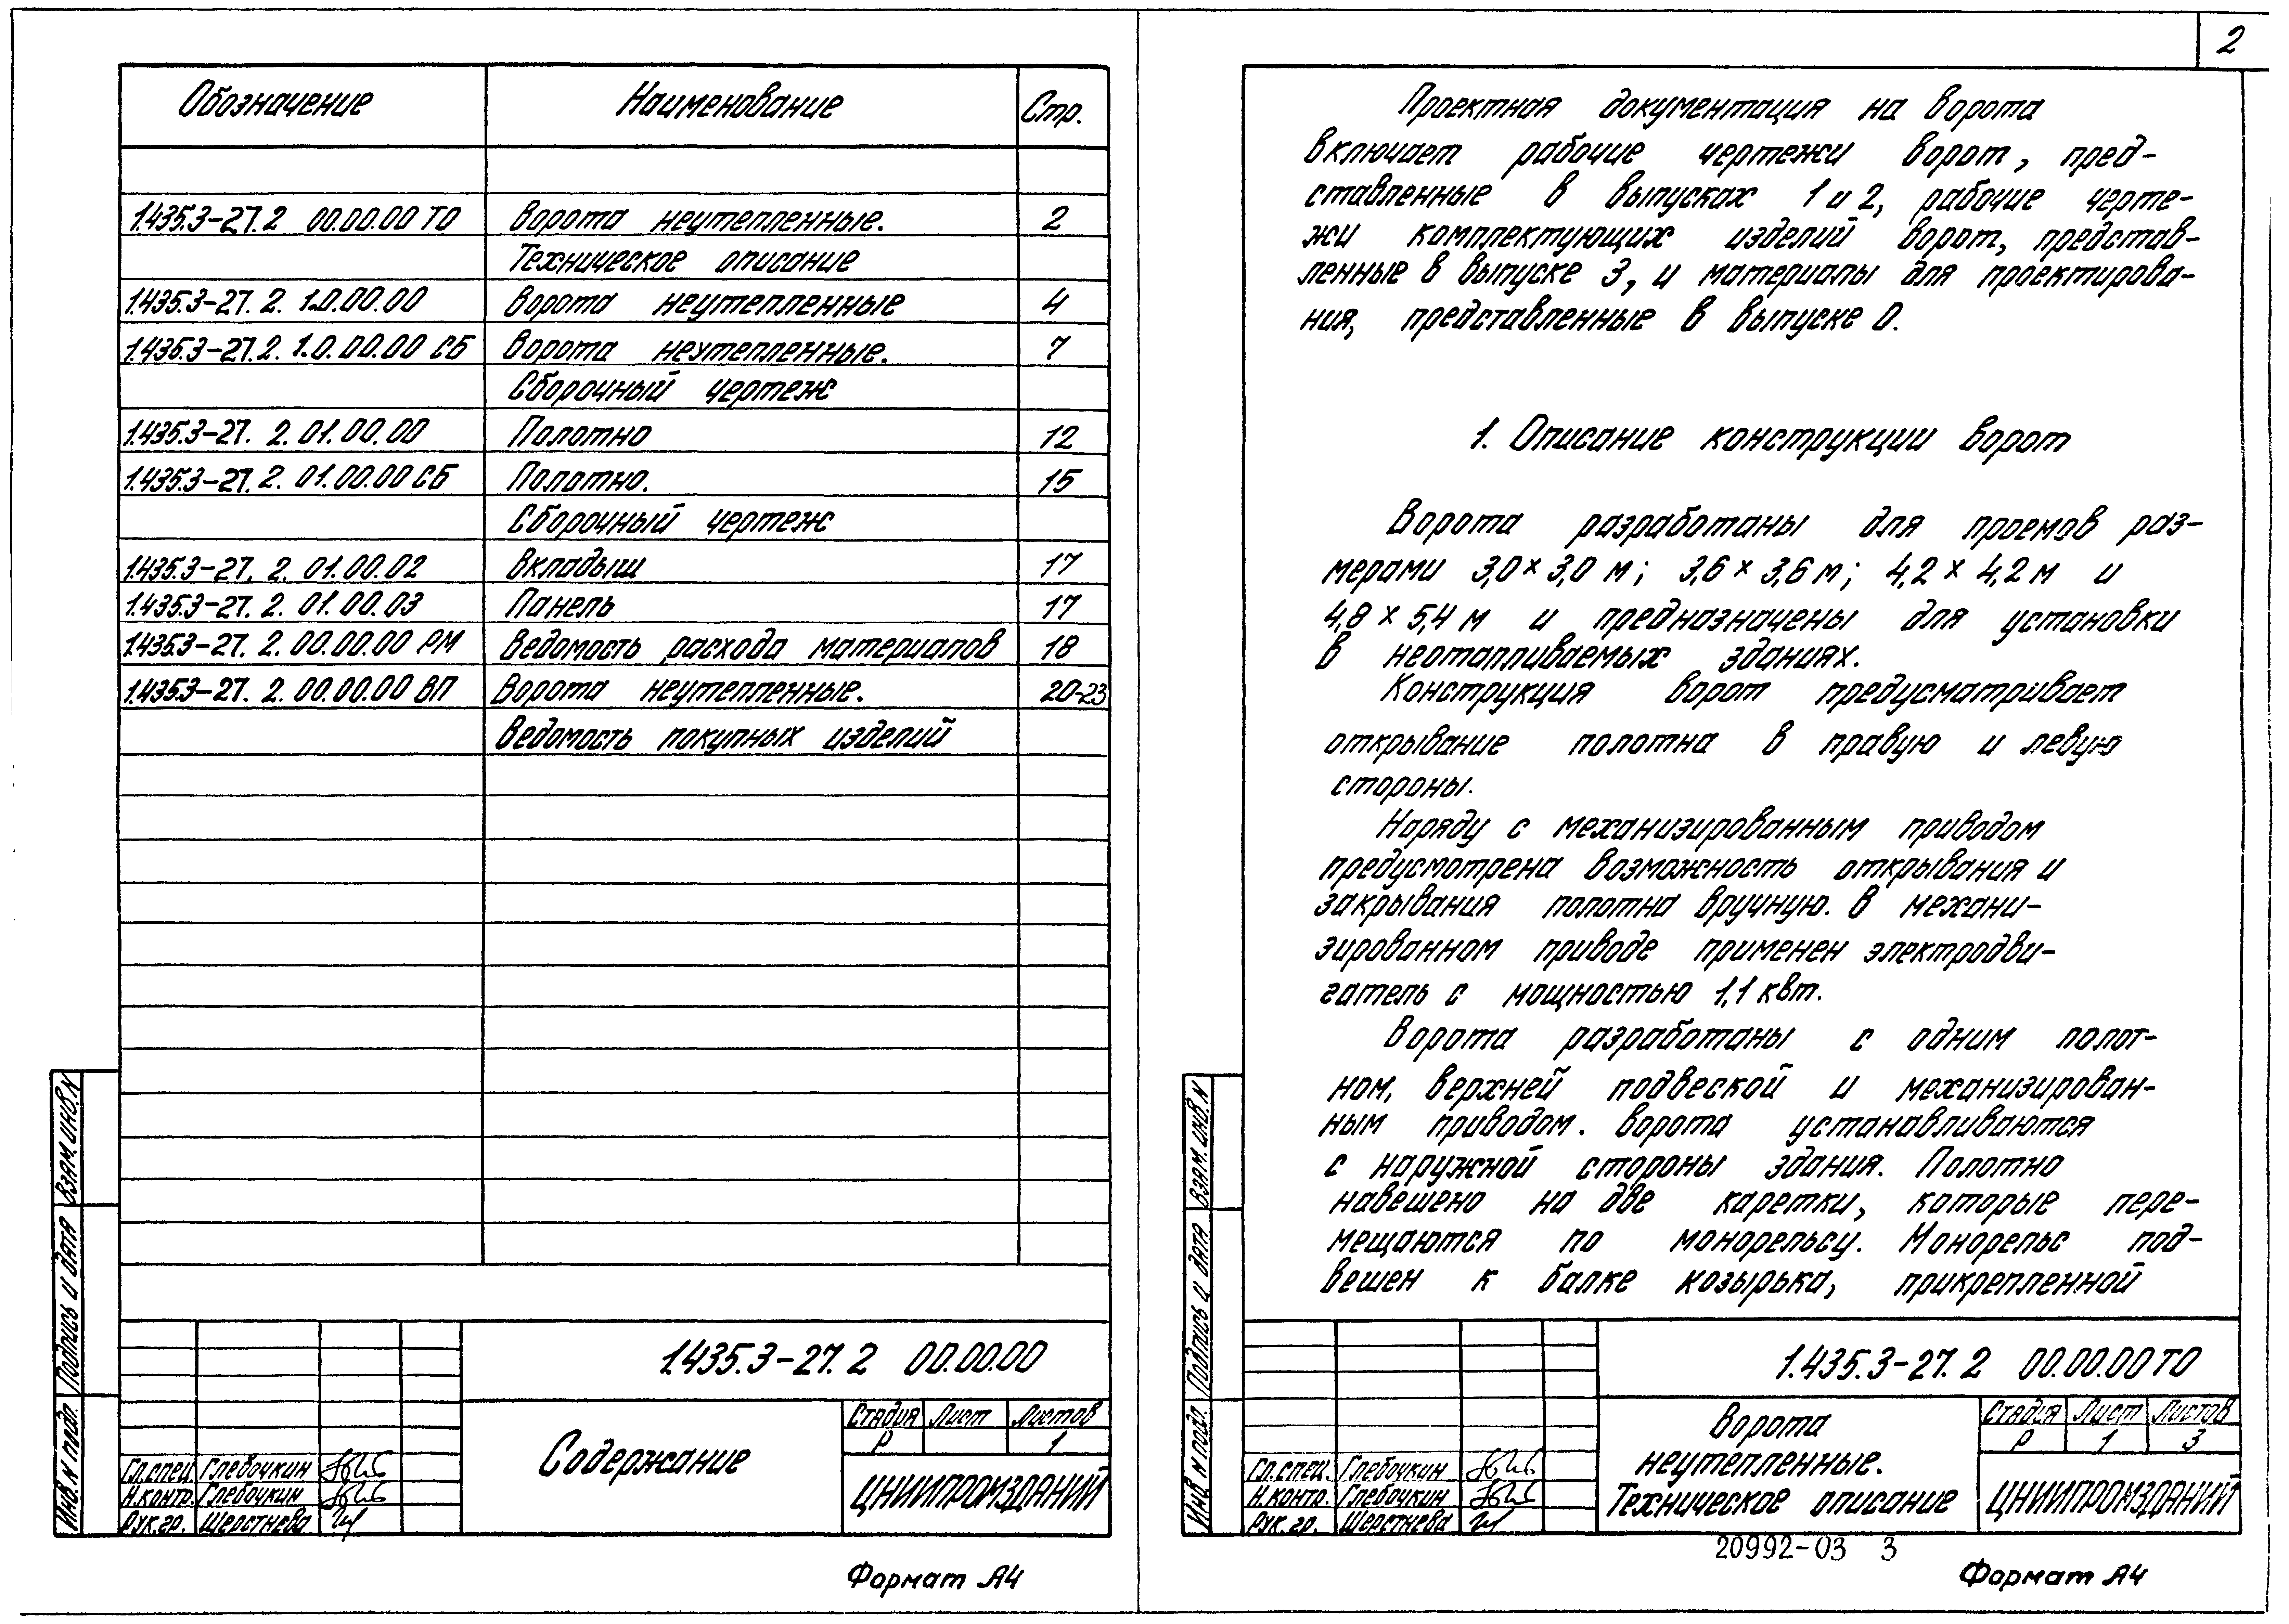 Обозначение Наименование Стр.
1.435.3-27.2 00.00.00 ТО Ворота неутепленные. 2
Техническое описание
1.435.3-27. 2. 1.0.00.00 Ворота неутепленные 4
1.435.3-27.2. 1.0.00.00 СБ Ворота неутепленные. 7
Сборочный чертеж
1.435.3-27. 2. 01.00.00 Полотно 12
1.435.3-27. 2. 01.00.00 СБ Полотно. 15
Сборочный чертеж
1.435.3-27. 2. 01.00.02 Вкладыш 17
1.435.3-27. 2. 01.00.03 Панель 17
1.435.3-27. 2. 00.00.00 РМ Ведомость расхода материалов 18
1.435.3-27. 2. 00.00.00 ВП Ворота неутепленные. 20-23
Ведомость покупных изделий
Взам. инв. N
Подпись и дата
Инв. N подл.
1.435.3-27. 2 00.00.00
Содержание
Стадия Лист Листов
Р 1
ЦНИИПРОМЗДАНИЙ
Гл.спец. Глебочкин
Н.контр. Глебочкин
Рук.гр. Шерстнева
Формат А4
2
Проектная документация на ворота
включает рабочие чертежи ворот, пред-
ставленные в выпусках 1 и 2, рабочие черте-
жи комплектующих изделий ворот, представ-
ленные в выпуске 3, и материалы для проектирова-
ния, представленные в выпуске 0.
1. Описание конструкции ворот
Ворота разработаны для проемов раз-
мерами 3,0 × 3,0 м; 3,6 × 3,6 м; 4,2 × 4,2 м и
4,8 × 5,4 м и предназначены для установки
в неотапливаемых зданиях.
Конструкция ворот предусматривает
открывание полотна в правую и левую
стороны.
Наряду с механизированным приводом
предусмотрена возможность открывания и
закрывания полотна вручную. В механи-
зированном приводе применен электродви-
гатель с мощностью 1,1 квт.
Ворота разработаны с одним полот-
ном, верхней подвеской и механизирован-
ным приводом. Ворота устанавливаются
с наружной стороны здания. Полотно
навешено на две каретки, которые пере-
мещаются по монорельсу. Монорельс под-
вешен к балке козырька, прикрепленной
Взам. инв. N
Подпись и дата
Инв. N подл.
1.435.3-27. 2 00.00.00 ТО
Ворота
неутепленные.
Техническое описание
Стадия Лист Листов
Р 1 3
ЦНИИПРОМЗДАНИЙ
Гл.спец. Глебочкин
Н.контр. Глебочкин
Рук.гр. Шерстнева
20992-03 3
Формат А4